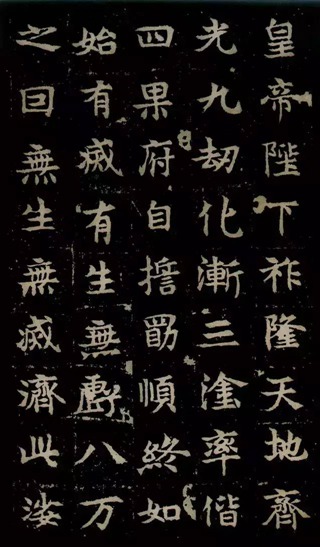 皇帝陛下祚隆天地齊
光九劫化漸三塗率偕
四果府自順終如
始有烕有生無虧八万
之曰無生無烕濟此